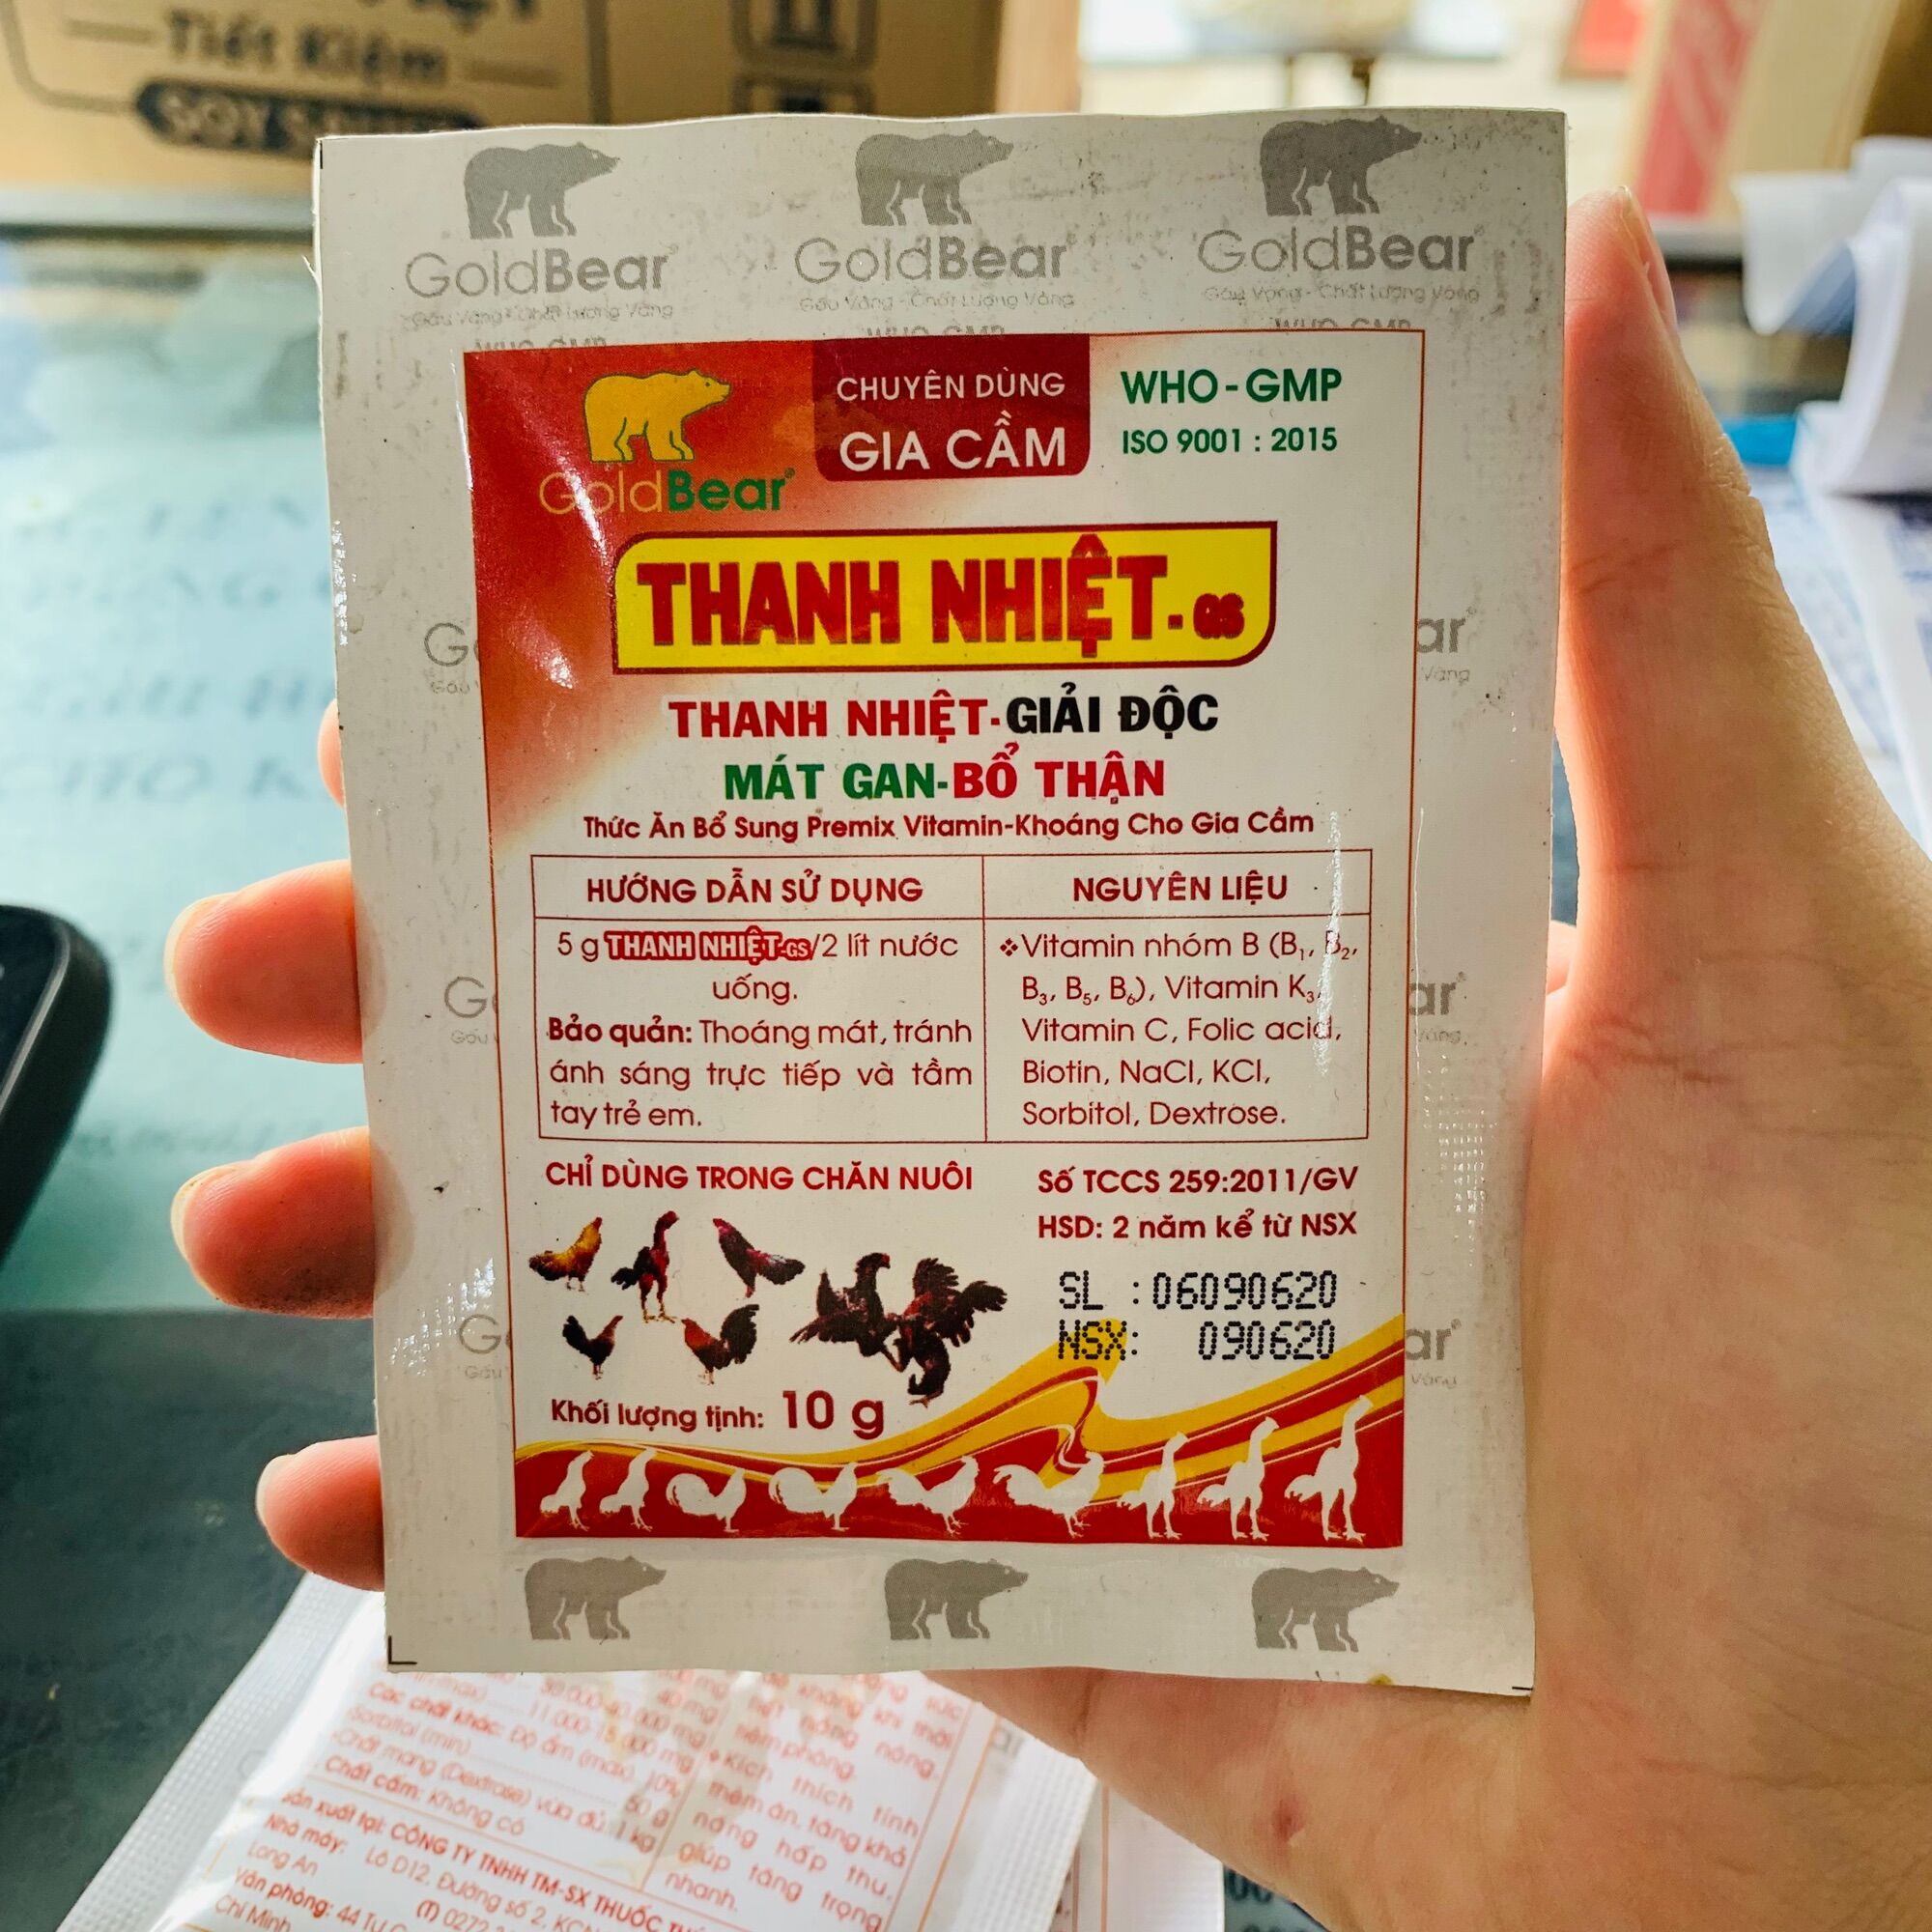 Tiết Kiệm
GoldBear GoldBear GoldBear
Gấu Vàng - Chất Lượng Vàng Gấu Vàng - Chất Lượng Vàng Gấu Vàng - Chất Lượng Vàng
WHO-GMP WHO-GMP WHO-GMP
GoldBear
CHUYÊN DÙNG
GIA CẦM
WHO - GMP
ISO 9001 : 2015
THANH NHIỆT-GS
THANH NHIỆT-GIẢI ĐỘC
MÁT GAN-BỔ THẬN
Thức Ăn Bổ Sung Premix Vitamin-Khoáng Cho Gia Cầm
HƯỚNG DẪN SỬ DỤNG
5 g THANH NHIỆT-GS/2 lít nước
uống.
Bảo quản: Thoáng mát, tránh
ánh sáng trực tiếp và tầm
tay trẻ em.
NGUYÊN LIỆU
❖Vitamin nhóm B (B1, B2,
B3, B5, B6), Vitamin K3,
Vitamin C, Folic acid,
Biotin, NaCl, KCl,
Sorbitol, Dextrose.
CHỈ DÙNG TRONG CHĂN NUÔI
Số TCCS 259:2011/GV
HSD: 2 năm kể từ NSX
SL : 06090620
NSX: 090620
Khối lượng tịnh: 10 g
Các chất khác: Độ ẩm (max). 10%
Sorbitol (min) 50 g
Chất mang (Dextrose) vừa đủ: 1 kg
Chất cấm: Không có
Sản xuất tại: CÔNG TY TNHH TM-SX THUỐC
Nhà máy: Lô D12, Đường số 2, KCN
Long An
Văn phòng: 44
Chí Minh
❖ Kích thích tính
thèm ăn, tăng khả
năng hấp thu,
giúp tăng trọng
nhanh.